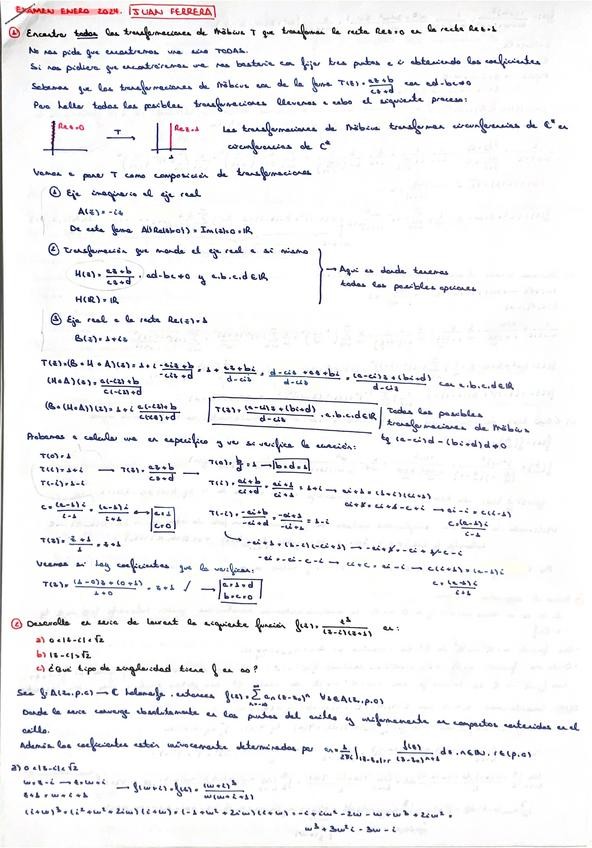 EXAMEN ENERO 2024. JUAN FERRERA
① Encontrar todas las transformaciones de Möbius T que transforman la recta Re z=0 en la recta Re z=1
No nos pide que encontremos una sino TODAS.
Si nos pidiera que encontráramos una nos bastaría con fijar tres puntos e ir obteniendo los coeficientes
Sabemos que las transformaciones de Möbius son de la forma T(z)= az+b / cz+d con ad-bc≠0
Para hallar todas las posibles transformaciones llevamos a cabo el siguiente proceso:
Re z=0 T Re z=1 Las transformaciones de Möbius transforman circunferencias de C* en
1 circunferencias de C*
Vamos a poner T como composición de transformaciones
① Eje imaginario al eje real
A(z)=-iz
De esta forma A({Re(z)=0})=Im(z)=0=ℝ
② Transformación que manda el eje real a si mismo
H(z)= az+b / cz+d , ad-bc≠0 y a,b,c,d∈ℝ → Aquí es donde tenemos
todas las posibles opciones
H(ℝ)=ℝ
③ Eje real a la recta Re(z)=1
B(z)=1+iz
T(z)=(B∘H∘A)(z)=1+i -aiz+b / -ciz+d = 1+ az+bi / d-ciz = d-ciz+az+bi / d-ciz = (a-ci)z+(bi+d) / d-ciz con a,b,c,d∈ℝ
(H∘A)(z)= a(-iz)+b / c(-iz)+d
(B∘(H∘A))(z)=1+i a(-iz)+b / c(-iz)+d T(z)= (a-ci)z+(bi+d) / d-ciz , a,b,c,d∈ℝ Todas las posibles
transformaciones de Möbius
tq (a-ci)d-(bi+d)d≠0
Probamos a calcular una en específico y ver si verifica la ecuación:
T(0)=1
T(i)=1+i → T(z)= az+b / cz+d → T(0)= b/d =1 → b=d=1
T(-i)=1-i T(i)= ai+b / ci+d = ai+1 / ci+1 = 1+i → ai+1=(1+i)(ci+1)
ai+1=ci+1-c+i → ai-i=c(i-1)
c= (a-1)i / i-1
c= (a-1)i / i-1 = (a-1)i / i+1 ↔ a=1 c=0 T(-i)= -ai+b / -ci+d = -ai+1 / -ci+1 = 1-i
-ai+1=(1-i)(-ci+1) → -ai+1=-ci+1-c-i
T(z)= z+1 / 1 = z+1 -ai=-ci-c-i → ci+c=ai-i → c(i+1)=(a-1)i
c= (a-1)i / i+1
Veamos si hay coeficientes que la verifican:
T(z)= (1-0)z+(0+1) / 1+0 = z+1 ✓ → a=1=d b=c=0
② Desarrolla en serie de Laurent la siguiente función f(z)= z³ / (z-i)(z+1) en:
a) 0<|z-i|<√2
b) |z-i|>√2
c) ¿Qué tipo de singularidad tiene f en ∞?
Sea f: A(z₀,ρ,σ) → C holomorfa, entonces f(z)= ∑ aₙ(z-z₀)ⁿ ∀z∈A(z₀,ρ,σ)
Donde la serie converge absolutamente en los puntos del anillo y uniformemente en compactos contenidos en el
anillo.
Además los coeficientes están unívocamente determinados por aₙ= 1/2πi ∫|z-z₀|=r f(z) / (z-z₀)ⁿ⁺¹ dz, n∈ℤ, r∈(ρ,σ)
a) 0<|z-i|<√2
w=z-i → z=w+i
z+1=w+i+1 → f(w+i)=f(z)= (w+i)³ / w(w+i+1)
(i+w)³=(i²+w²+2iw)(i+w)=(-1+w²+2iw)(i+w)=-i+iw²-2w-w+w³+2iw²=
w³+3w²i-3w-i